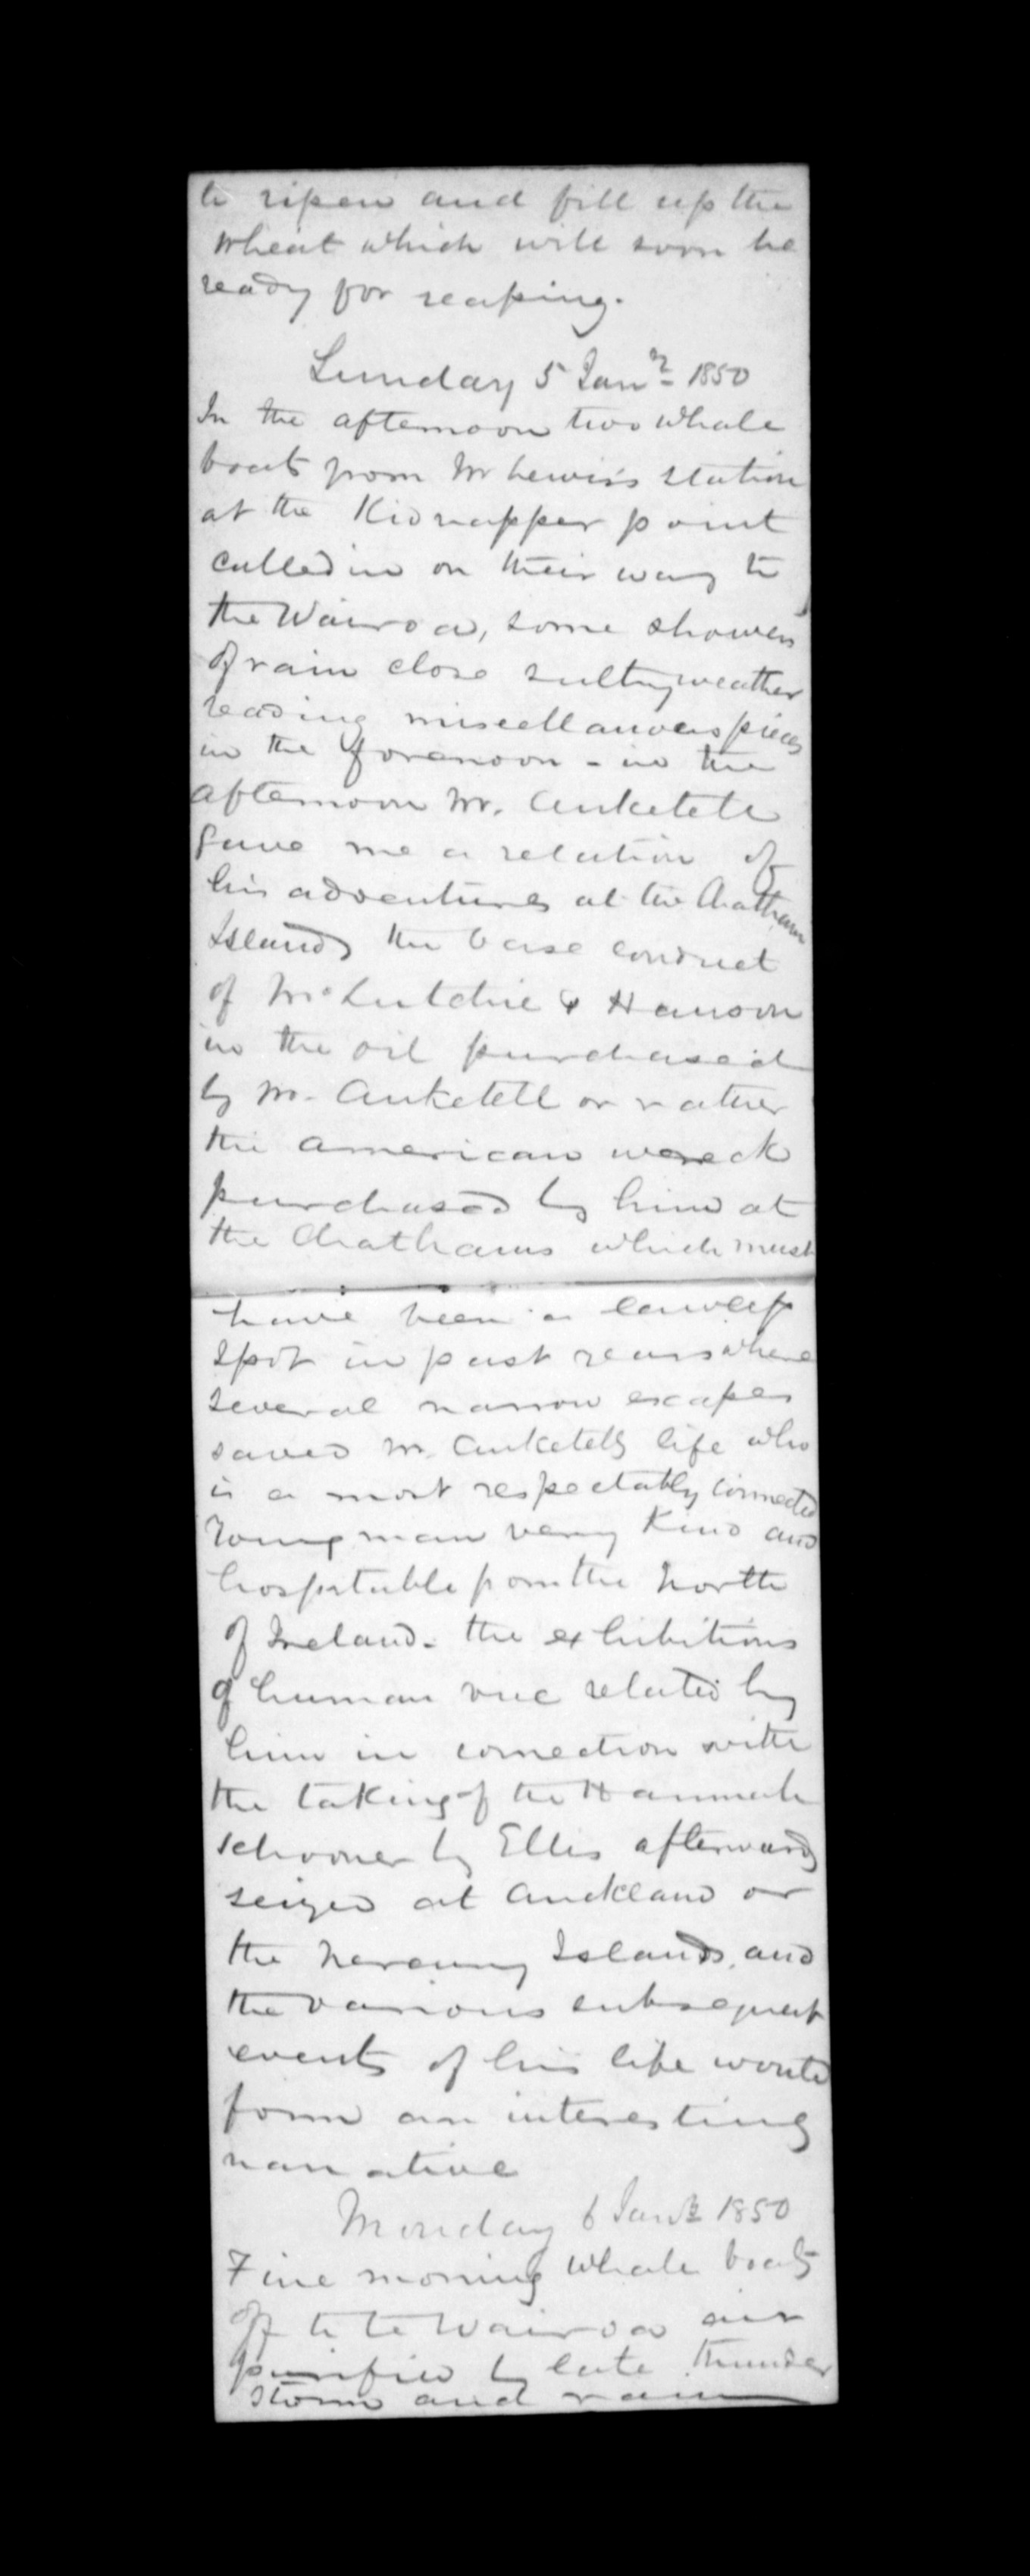 to ripen and fill up the
wheat which will soon be
ready for reaping.
Sunday 5 Jany 1850
In the afternoon two whale
boats from Mr Lewis's station
at the Kidnapper point
called in on their way to
the Wairoa, some showers
of rain close sultry weather
reading miscellaneous pieces
in the forenoon - in the
afternoon Mr. Anketell
gave me a relation of
his adventures at the Chatham
Islands the base conduct
of & Hanson
in the oil purchased
by Mr. Anketell or rather
the American wreck
purchased by him at
the Chathams which must
have been a lawless
spot in past years where
several narrow escapes
saved Mr. Anketells life who
is a most respectably connected
young man very kind and
hospitable from the North
of Ireland. the exhibitions
of human vice related by
him in connection with
the taking of the Hannah
schooner by Ellis afterwards
seized at Auckland or
the Islands, and
the various subsequent
events of his life would
form an interesting
narrative
Monday 6 Jany 1850
Fine morning whale boats
off to te Wairoa air
purified by late thunder
storm and rain